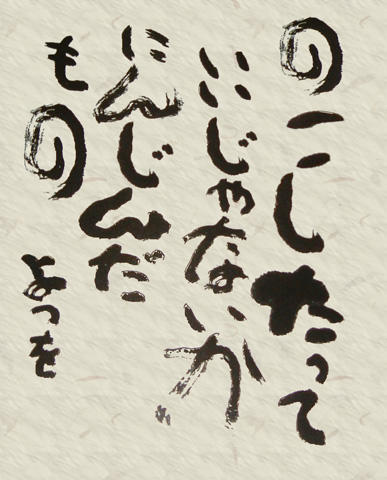 のこしたって
いいじゃないか
にんじんだ
もの
よつを